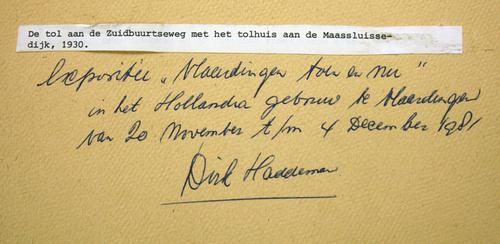 De tol aan de Zuidbuurtseweg met het tolhuis aan de Maassluisse-
dijk, 1930.
Expositie „Vlaardingen toen en nu"
in het Hollandia gebouw te Vlaardingen
van 20 November t/m 4 December 1981
Dirk Haddeman